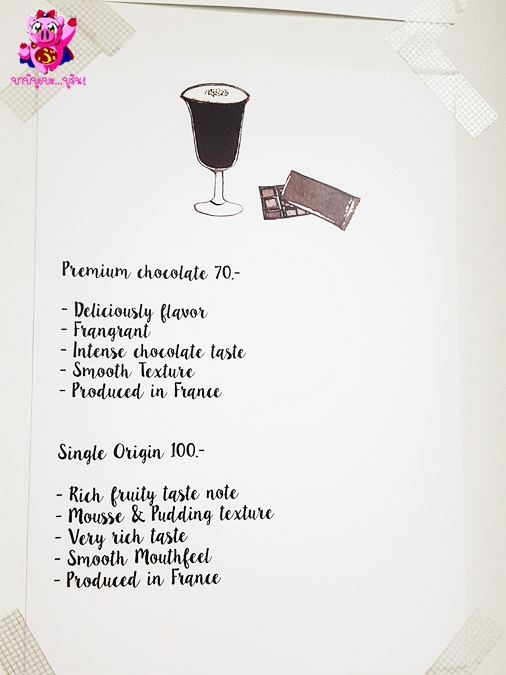 บาบิบูเบะ...บูริน!
Premium chocolate 70.-
- Deliciously flavor
- Frangrant
- Intense chocolate taste
- Smooth Texture
- Produced in France
Single Origin 100.-
- Rich fruity taste note
- Mousse & Pudding texture
- Very rich taste
- Smooth Mouthfeel
- Produced in France